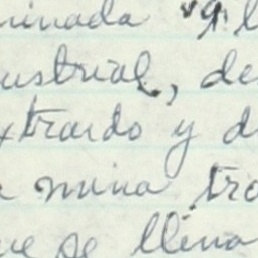 inada "9
ustrial, de
xtraido y d
mina tra
ue se llena